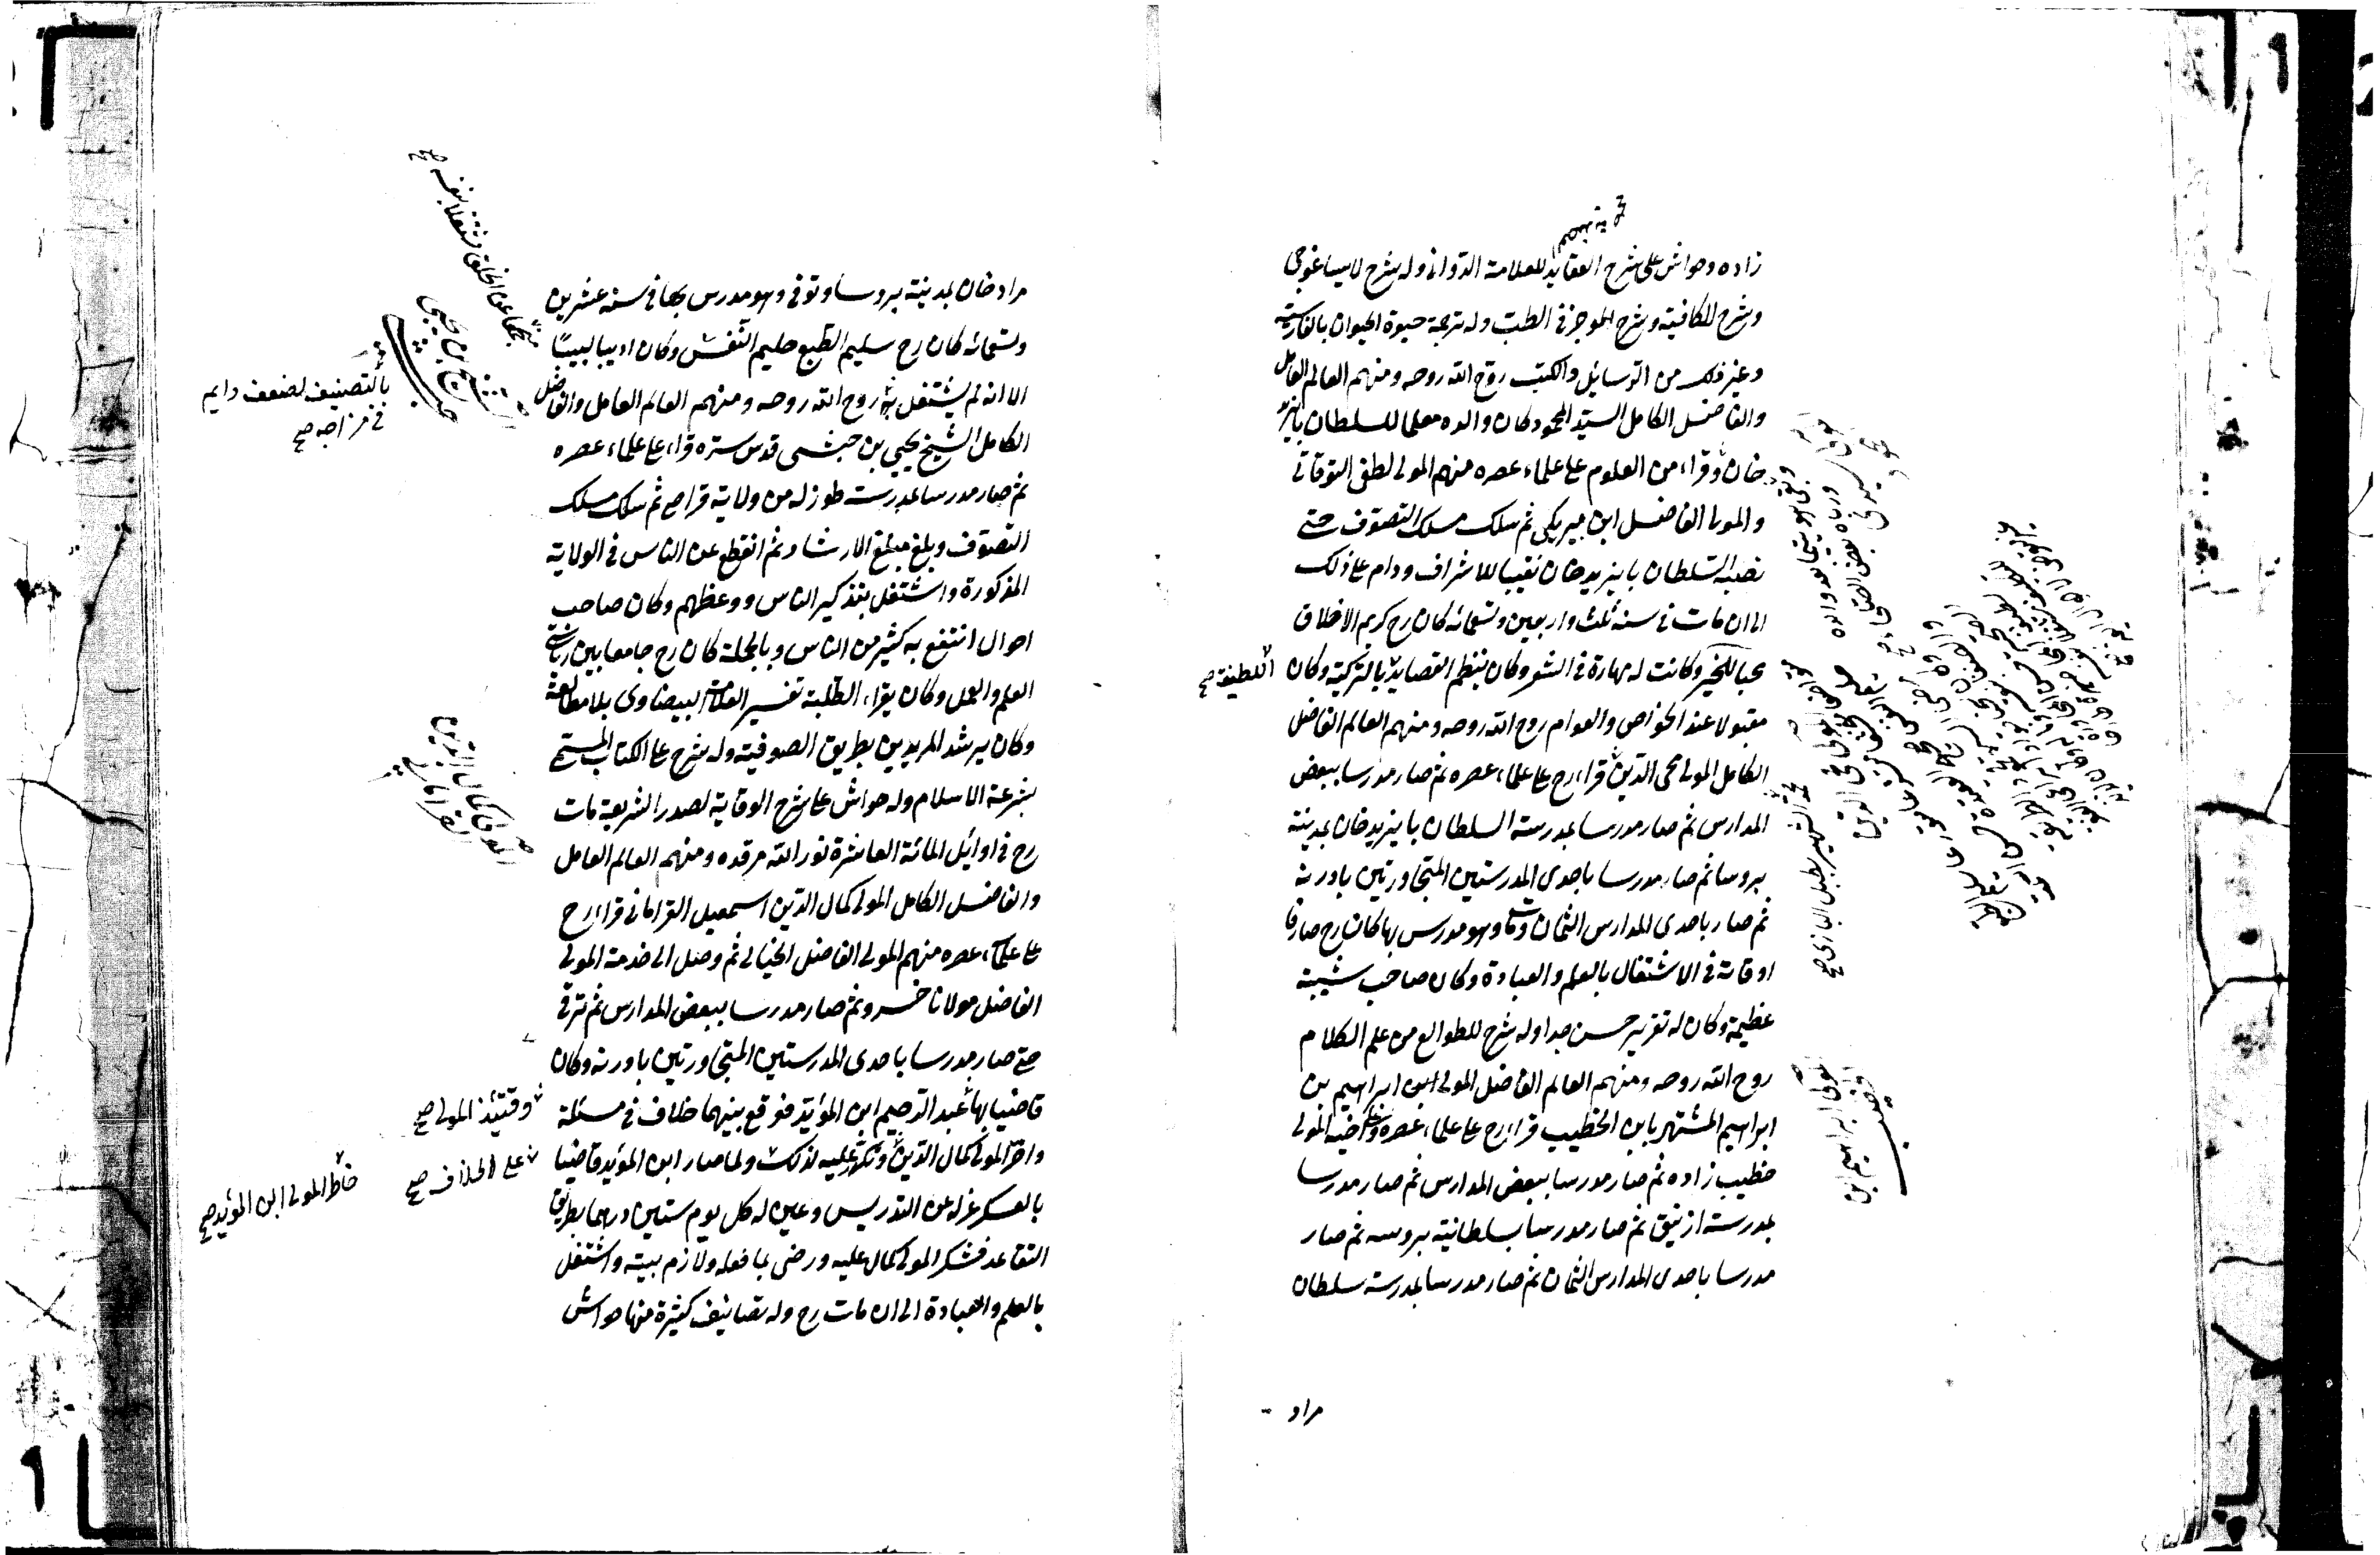 زاده وحواش على شرح العقايد للعلامة الدواني وله شرح لايساغوجي
وشرح للكافية وشرح الموجز في الطب وله ترجمة حيوة الحيوان بالفارسية
وغير ذلك من الرسائل والكتب روح الله روحه ومنهم العالم العامل
والفاضل الكامل السيد المحمود كان والده معلما للسلطان بايزيد
خان وقراء من العلوم على علماء عصره منهم المولى لطفي التوقاتي
والمولى الفاضل ابن بيريكي ثم سلك مسلك التصوف حتى
نصبه السلطان بايزيد خان نقيبا للاشراف ودام على ذلك
الى ان مات في سنة ثلث واربعين وتسعمائه كان رح كريم الاخلاق
محبا للخير وكانت له مهارة في الشعر وكان ينظم القصايد بالتركية وكان
اللطيفة صح
مقبولا عند الخواص والعوام روح الله روحه ومنهم العالم الفاضل
الكامل المولى محي الدين قراء رح على علماء عصره ثم صار مدرسا ببعض
المدارس ثم صار مدرسا بمدرسة السلطان بايزيد خان بمدينة
بروسا ثم صار مدرسا باحدى المدرستين المتجاورتين بادرنه
ثم صار باحدى المدارس الثمان ومات وهو مدرس بها كان رح صارفا
اوقاته في الاشتغال بالعلم والعبادة وكان صاحب شيبة
عظيمة وكان له تقرير حسن جدا وله شرح للطوالع من علم الكلام
روح الله روحه ومنهم العالم الفاضل المولى ابن ابراهيم بن
ابراهيم المشتهر بابن الخطيب قراء رح على علماء عصره وعلى اخيه المولى
خطيب زاده ثم صار مدرسا ببعض المدارس ثم صار مدرسا
بمدرسة ازنيق ثم صار مدرسا بسلطانية بروسه ثم صار
مدرسا باحدى المدارس الثمان ثم صار مدرسا بمدرسة سلطان
مراد
مراد خان بمدينة بروسا وتوفي وهو مدرس بها في سنه عشرين
وتسعمائه كان رح سليم الطبع حليم النفس وكان اديبا لبيبا
الا انه لم يشتغل روح الله روحه ومنهم العالم العامل والفاضل
بالتصنيف لضعف دايم
في مزاجه صح
الكامل الشيخ يحيى بن خبشى قدس سره قراء على علماء عصره
ثم صار مدرسا بمدرسة طوزله من ولاية قراصي ثم سلك مسلك
التصوف وبلغ مبلغ الارشاد ثم انقطع عن الناس في الولاية
المذكورة واشتغل بتذكير الناس ووعظهم وكان صاحب
احوال انتفع به كثير من الناس وبالجملة كان رح جامعا بين رياستي
العلم والعمل وكان يقراء الطلبة تفسير العلامة البيضاوي بلا مطالعة
وكان يرشد المريدين بطريق الصوفية وله شرح على الكتاب المسمى
بشرعة الاسلام وله حواش على شرح الوقاية لصدر الشريعة مات
رح في اوائل المائة العاشرة نور الله مرقده ومنهم العالم العامل
والفاضل الكامل المولى كمال الدين اسمعيل القراماني قراء رح
على علماء عصره منهم المولى الفاضل الخيالي ثم وصل الى خدمة المولى
الفاضل مولانا خسرو ثم صار مدرسا ببعض المدارس ثم ترقى
حتى صار مدرسا باحدى المدرستين المتجاورتين بادرنه وكان
قاضيا بها عبد الرحيم ابن المؤيد فوقع بينهما خلاف في مسئلة
وقتئذ المولى صح
واصر المولى كمال الدين وتكدر عليه لذلك ولما صار ابن المؤيد قاضيا
على الخلاف صح
خاطر المولى ابن المؤيد صح
بالعسكر عزله عن التدريس وعين له كل يوم ستين درهما بطريق
التقاعد فشكر المولى كمال عليه ورضي بما فعله ولازم بيته واشتغل
بالعلم والعبادة الى ان مات رح وله تصانيف كثيرة منها حواش